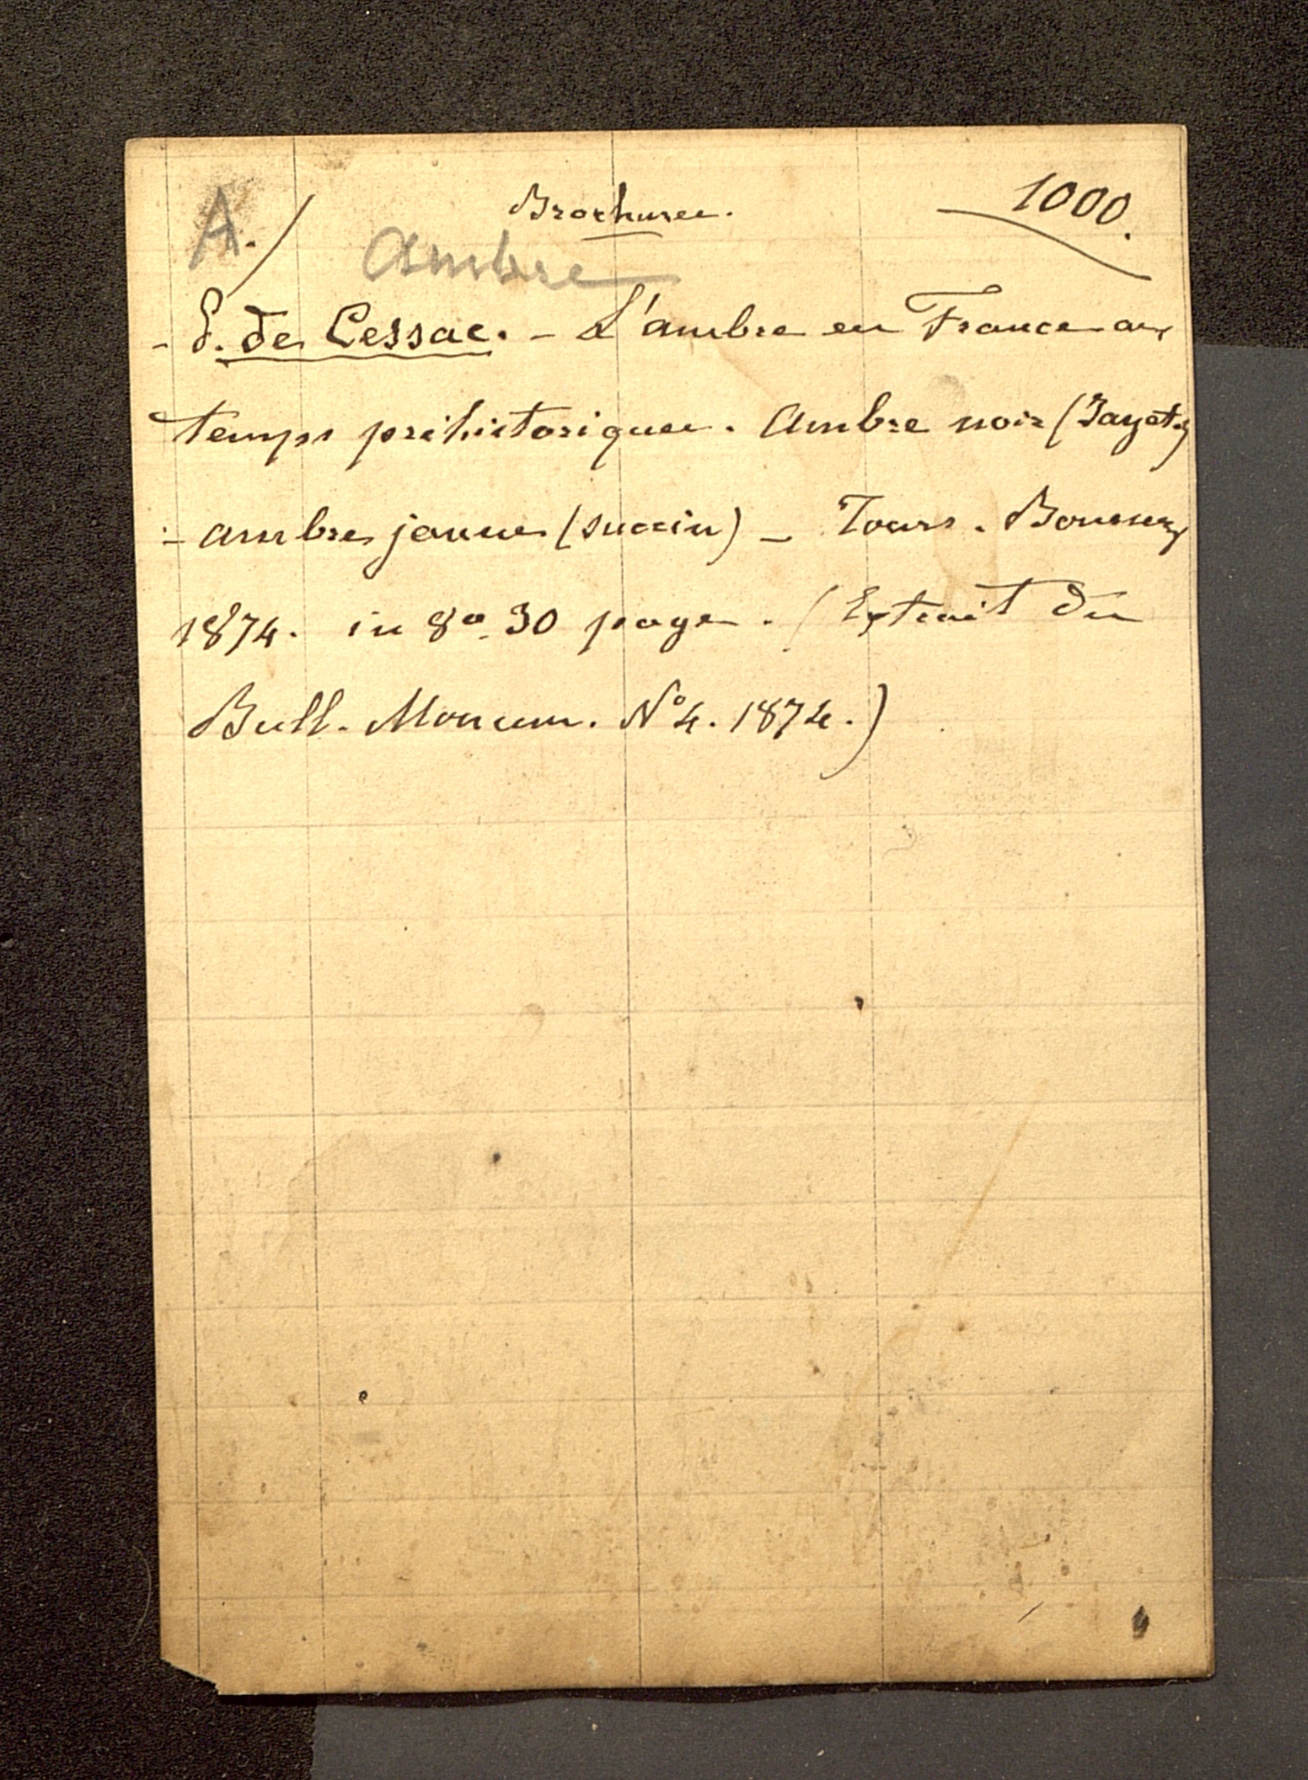 A. Brochures. 1000.
Ambre
- E. de Cessac. - L'ambre en France aux
temps préhistoriques. Ambre noir (Jayet)
- ambre jaune (succin) - Tours. Bouserez
1874. in 8º 30 pages. (Extrait du
Bull. Monum. Nº 4. 1874.)